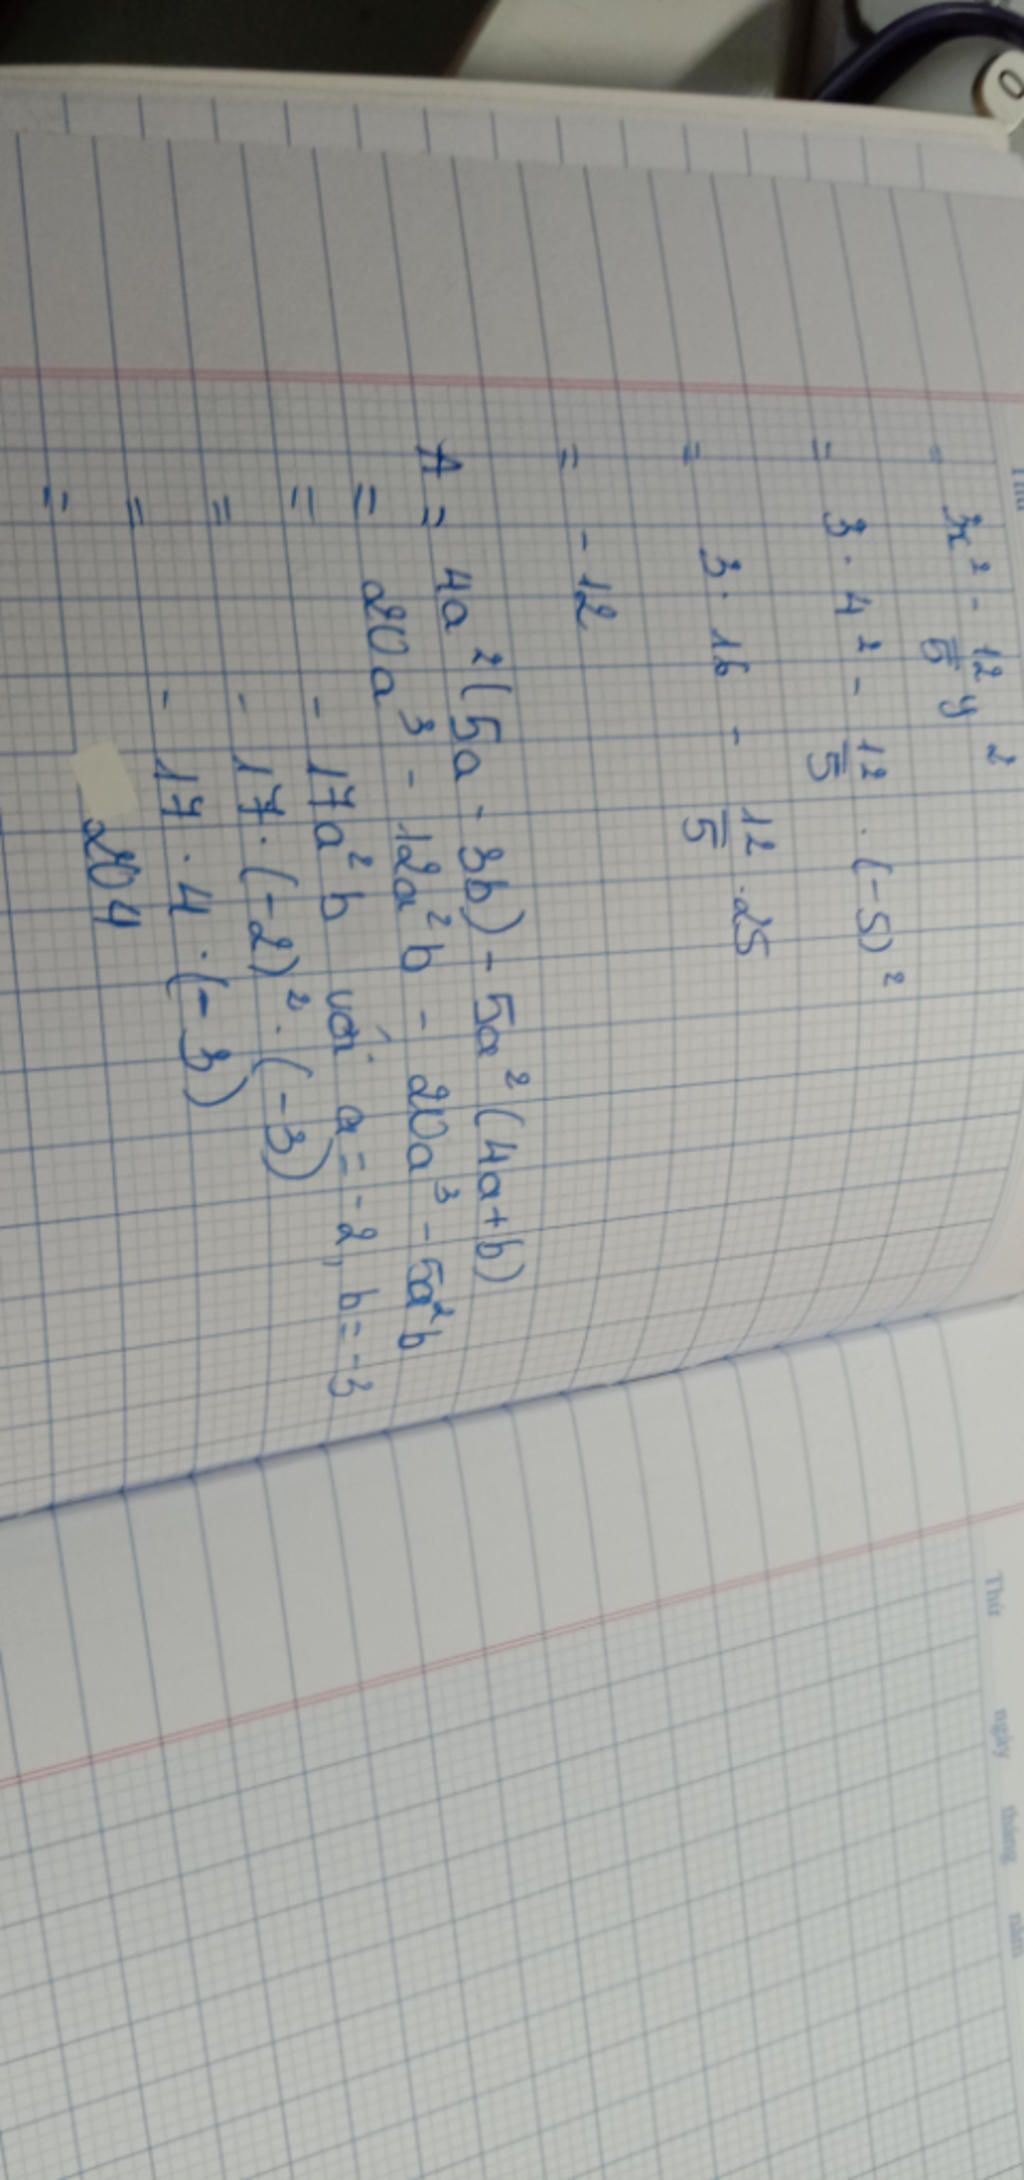 = 3x² - 12/5 y²
= 3 . 4² - 12/5 . (-5)²
= 3 . 16 - 12/5 . 25
= - 12
A = 4a²(5a - 3b) - 5a²(4a+b)
= 20a³ - 12a²b - 20a³ - 5a²b
= - 17a²b với a = -2, b = -3
= - 17 . (-2)² . (-3)
= - 17 . 4 . (-3)
= 204
Thứ ngày tháng năm